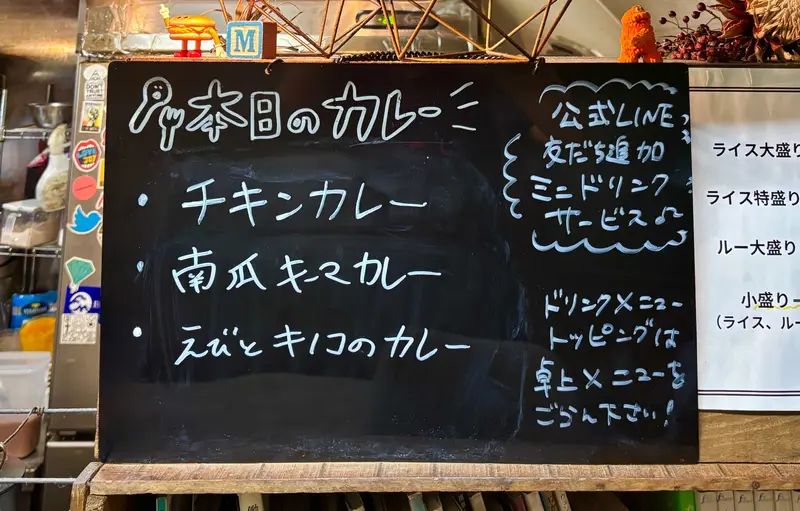 本日のカレー
・チキンカレー
・南瓜キーマカレー
・えびとキノコのカレー
公式LINE
友だち追加
ミニドリンク
サービス♪
ドリンクメニュー
トッピングは
卓上メニューを
ごらん下さい!
ライス大盛り
ライス特盛り
ルー大盛り
小盛り
(ライス、ルー
M